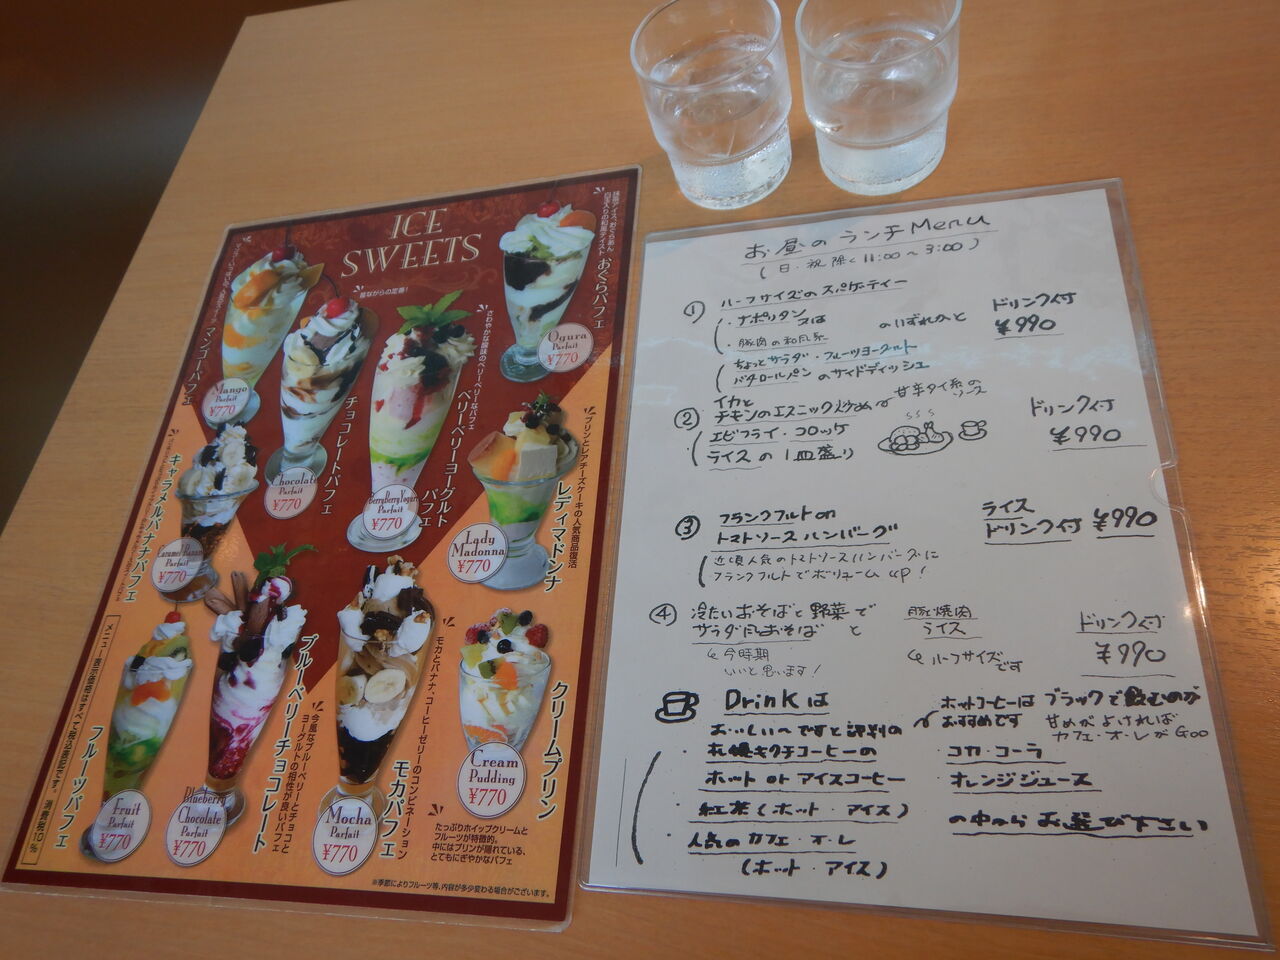 ICE
SWEETS
マンゴーパフェ
Mango
Parfait
¥770
昔ながらの定番!
チョコレートパフェ
Chocolate
Parfait
¥770
さわやかな酸味のベリーベリーなパフェ
ベリーベリーヨーグルト
パフェ
BerryBerryYogurt
Parfait
¥770
おぐらパフェ
Ogura
Parfait
¥770
キャラメルバナナパフェ
Caramel Banana
Parfait
¥770
プリンとレアチーズケーキの人気商品復活
レディマドンナ
Lady
Madonna
¥770
フルーツパフェ
Fruit
Parfait
¥770
今風なブルーベリーとチョコと
ヨーグルトの相性が良いパフェ
ブルーベリーチョコレート
Blueberry
Chocolate
Parfait
¥770
モカとバナナ、コーヒーゼリーのコンビネーション
モカパフェ
Mocha
Parfait
¥770
クリームプリン
Cream
Pudding
¥770
たっぷりホイップクリームと
フルーツが特徴的。
中にはプリンが隠れている、
とてもにぎやかなパフェ
メニュー表示価格はすべて税込表記です。 消費税10%
※季節によりフルーツ等、内容が多少変わる場合がございます。
お昼のランチMenu
(日・祝除く11:00～3:00)
① ハーフサイズのスパゲティー
・ナポリタン
又は
・豚肉の和風系
のいずれかと
ドリンク付
¥990
ちょっとサラダ・フルーツヨーグルト
バタロールパンのサイドディッシュ
② イカと
チキンのエスニック炒め
甘辛タイ系の
ソース
エビフライ・コロッケ
ライスの1皿盛り
ドリンク付
¥990
③ フランクフルトon
トマトソースハンバーグ
ライス
ドリンク付 ¥990
近頃人気のトマトソースハンバーグに
フランクフルトでボリュームup!
④ 冷たいおそばと野菜で
サラダ風おそば と
今時期
いいと思います!
豚焼肉
ライス
ハーフサイズ
です
ドリンク付
¥990
Drinkは
お・いし～ですと評判の
札幌キクチコーヒーの
ホット or アイスコーヒー
紅茶(ホット・アイス)
人気のカフェ・オ・レ
(ホット・アイス)
ホットコーヒーはブラックで飲むのが
おすすめです 甘めがよければ
カフェ・オ・レがGoo
コカ・コーラ
オレンジジュース
の中から お選び下さい